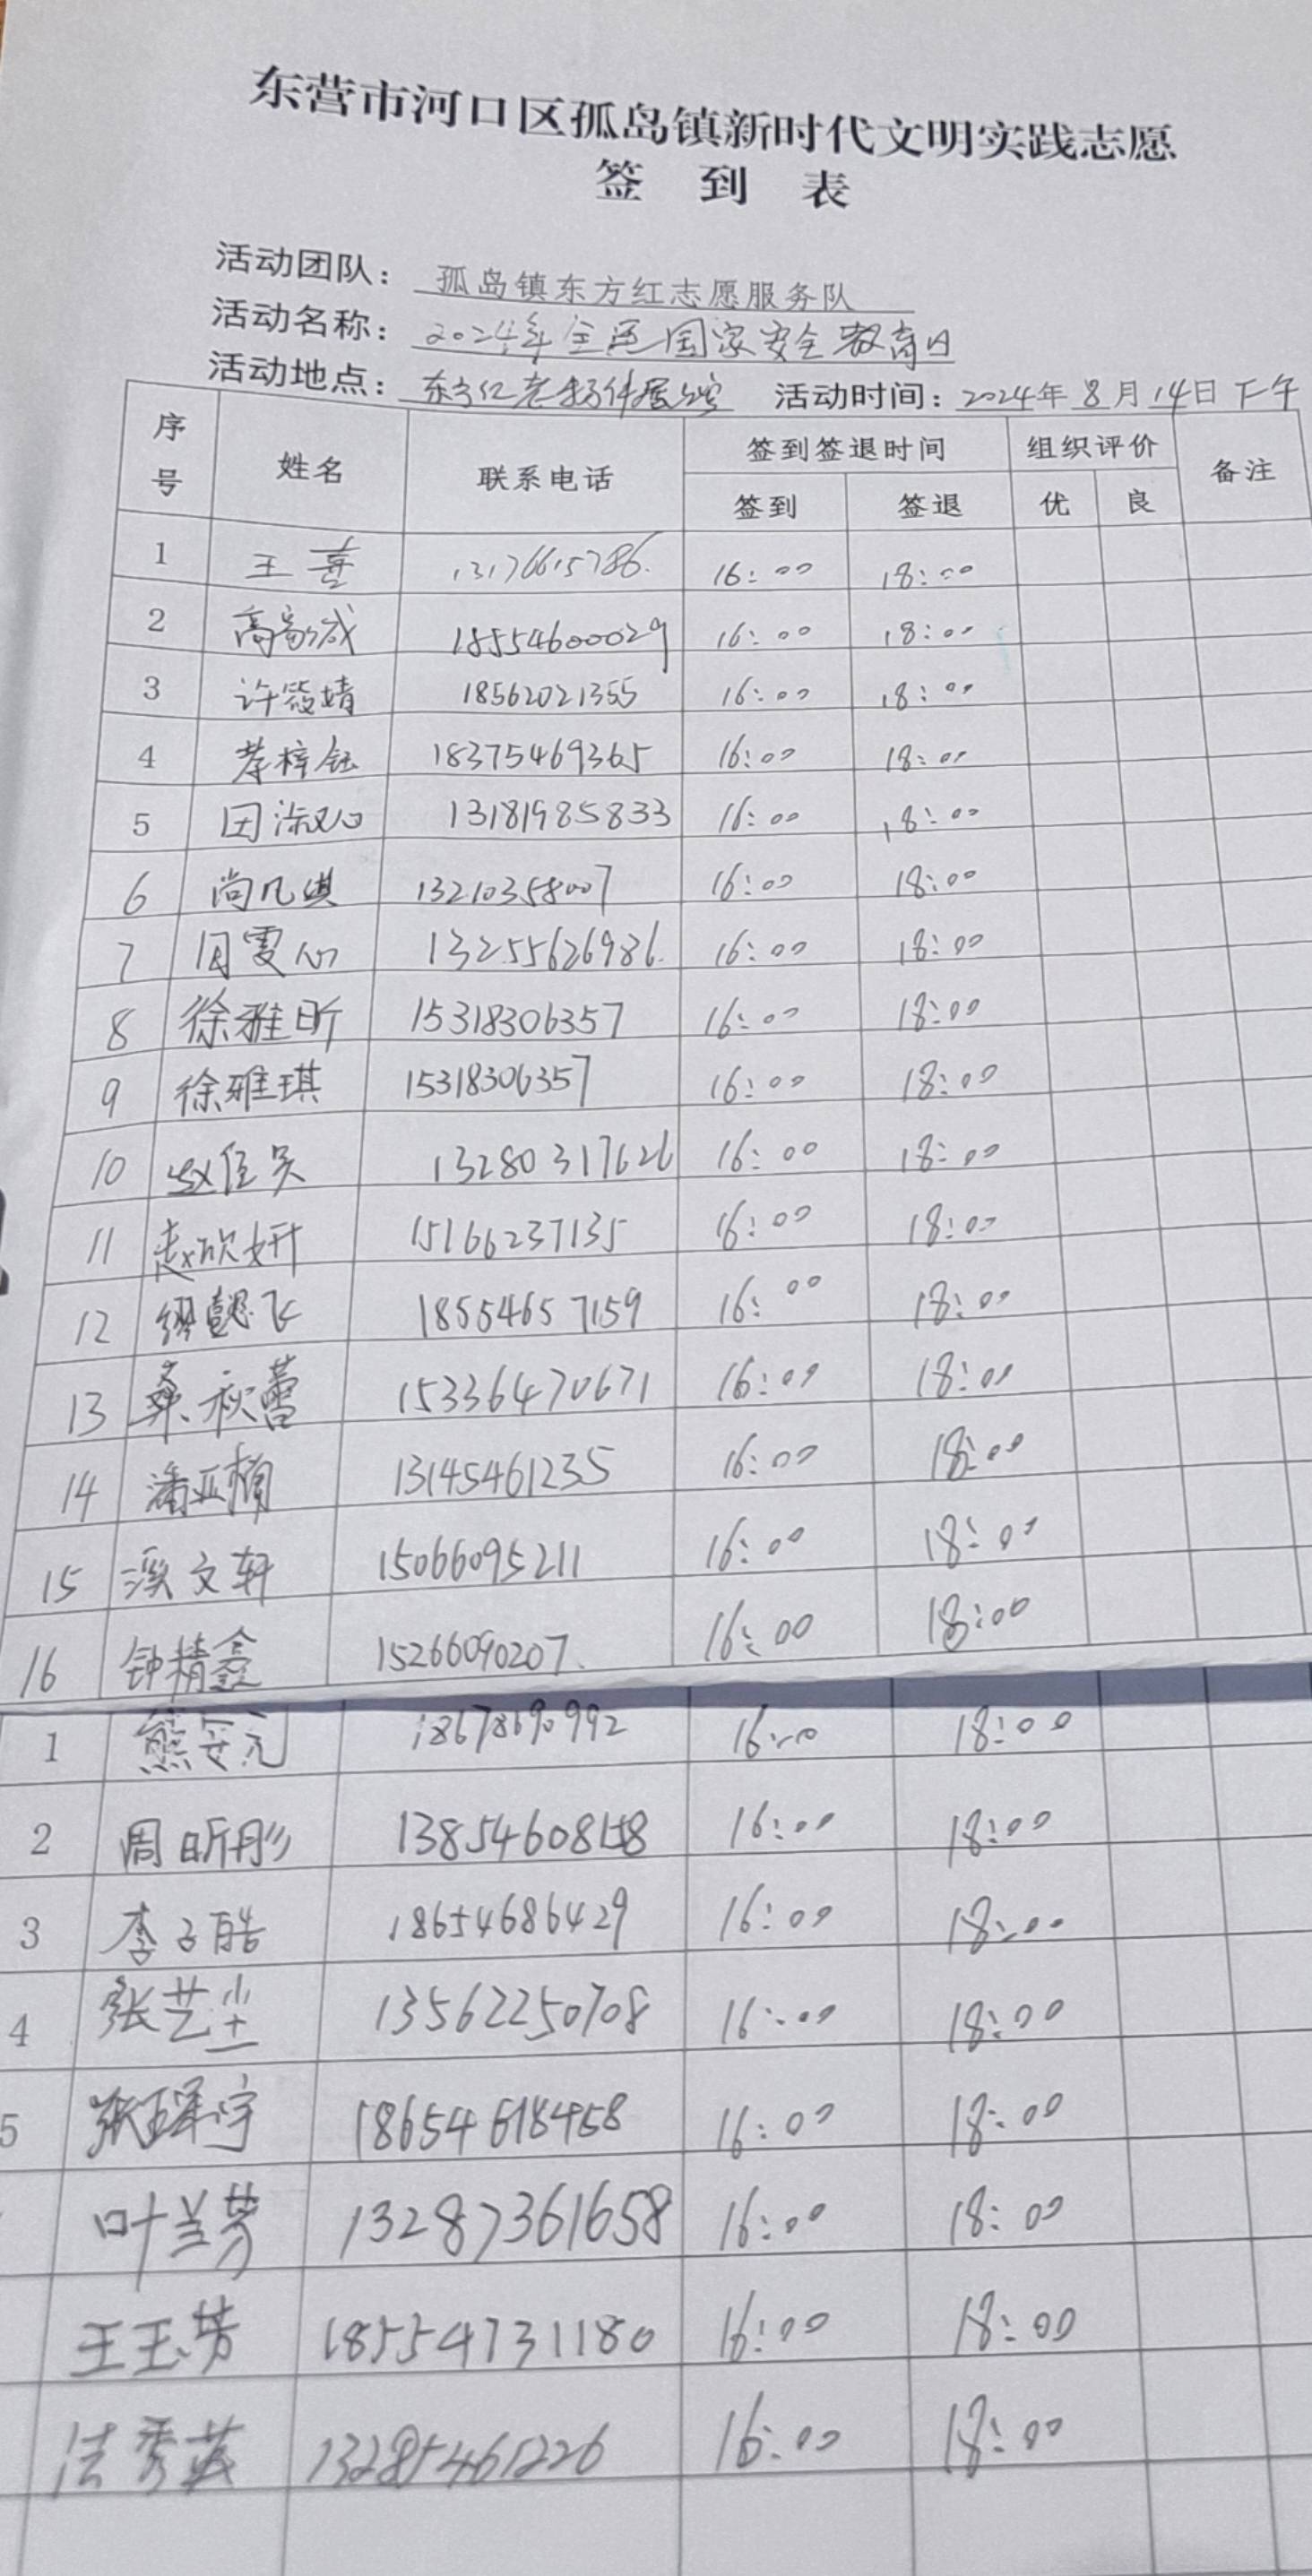 东营市河口区孤岛镇新时代文明实践志愿
签 到 表
活动团队：孤岛镇东方红志愿服务队
活动名称：2024年全民国家安全教育日
活动地点：东方红老物件展览室 活动时间：2024年 8月 14日 下午
序号 姓名 联系电话 签到签退时间 组织评价 备注
签到 签退 优 良
1 王喜 13176615786. 16:00 18:00
2 高家诚 18554600029 16:00 18:00
3 许筱婧 18562021355 16:00 18:00
4 梓钰 18375469365 16:00 18:00
5 田淑心 13181985833 16:00 18:00
6 尚凡琪 13210358007 16:00 18:00
7 周雯心 13255626986. 16:00 18:00
8 徐雅昕 15318306357 16:00 18:00
9 徐雅琪 15318306357 16:00 18:00
10 赵佳 13280317626 16:00 18:00
11 赵欣妍 15166237135 16:00 18:00
12 缪懿飞 18554657159 16:00 18:00
13 桑秋蕾 15336470671 16:00 18:00
14 潘亚楠 13145461235 16:00 18:00
15 溪文轩 15066095211 16:00 18:00
16 钟精鑫 15266090207. 16:00 18:00
1 熊安元 18678690992 16:00 18:00
2 周昕彤 13854608158 16:00 18:00
3 李子皓 18654686429 16:00 18:00
4 张艺尘 13562250708 16:00 18:00
5 张珲宇 18654618458 16:00 18:00
叶兰芳 13287361658 16:00 18:00
王玉芳 18554731180 16:00 18:00
法秀英 13285461226 16:00 18:00